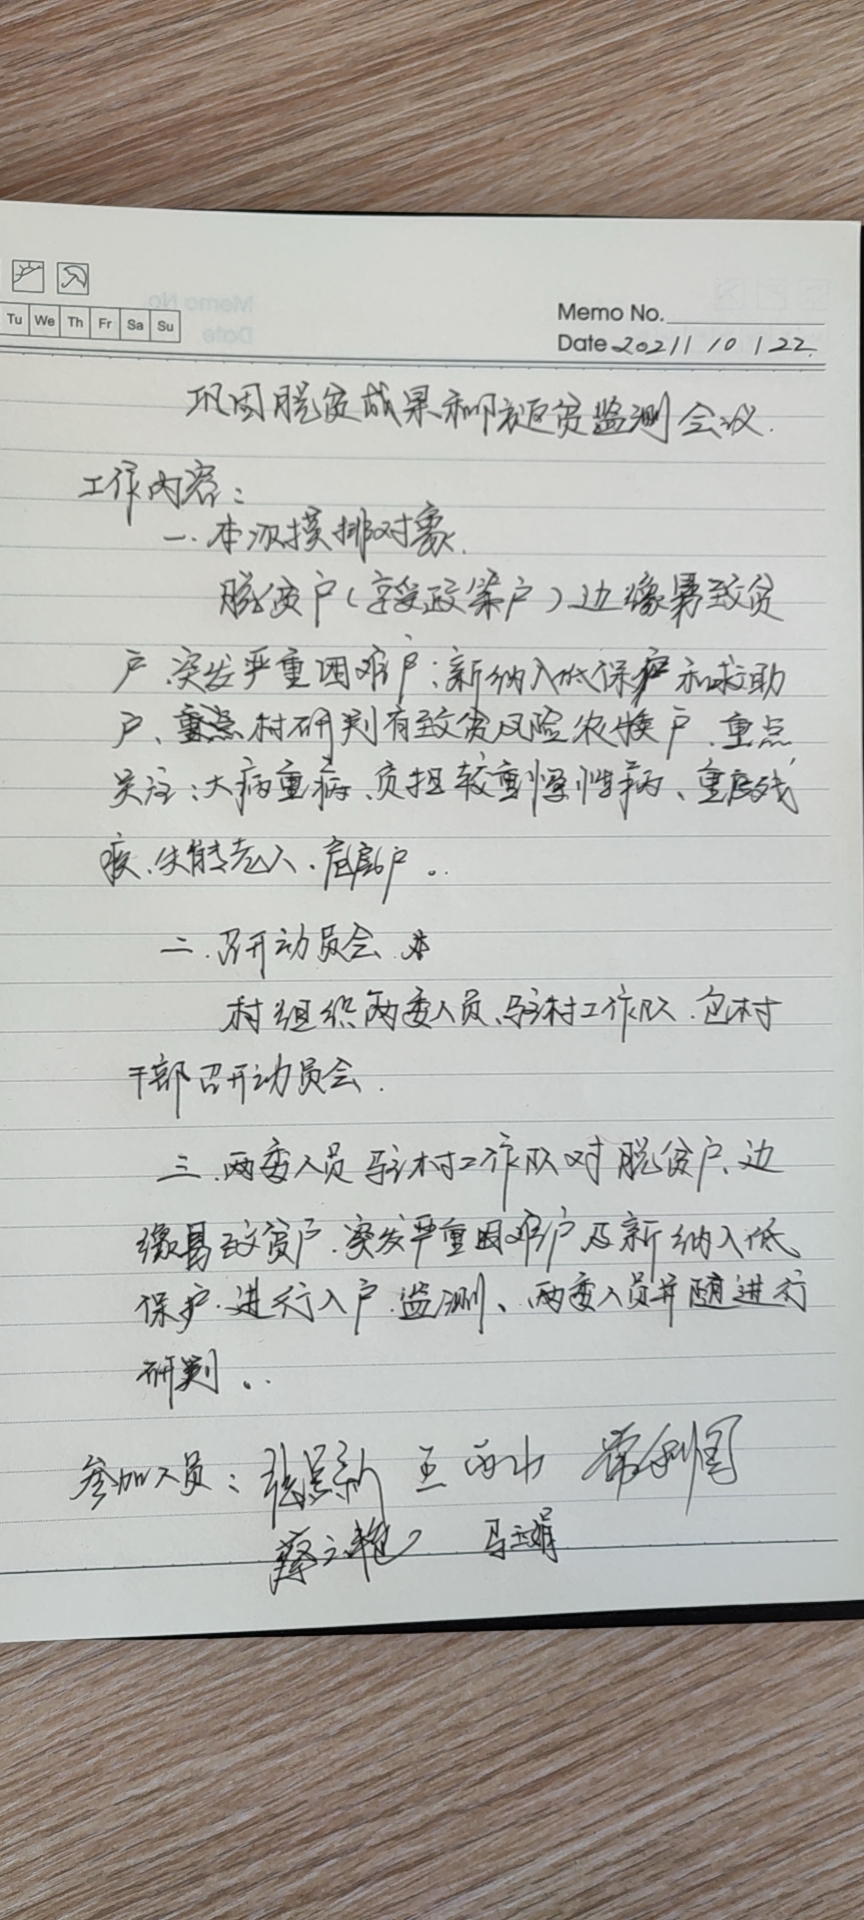 Tu We Th Fr Sa Su
Memo No.
Date 2021 / 10 / 22.
巩固脱贫成果和防返贫监测会议.
工作内容:
一.本次摸排对象.
脱贫户(享受政策户)边缘易致贫
户.突发严重困难户;新纳入低保户和救助
户、重点村研判有致贫风险农户.重点
关注:大病重病、负担较重慢性病、重度残
疾、失能老人.危房户。
二.召开动员会.
村组织两委人员、驻村工作队.包村
干部召开动员会.
三.两委人员驻村工作队对脱贫户、边
缘易致贫户.突发严重困难户及新纳入低
保户.进行入户.监测、两委人员并随进行
研判。
参加人员:
蔡 马玉娟